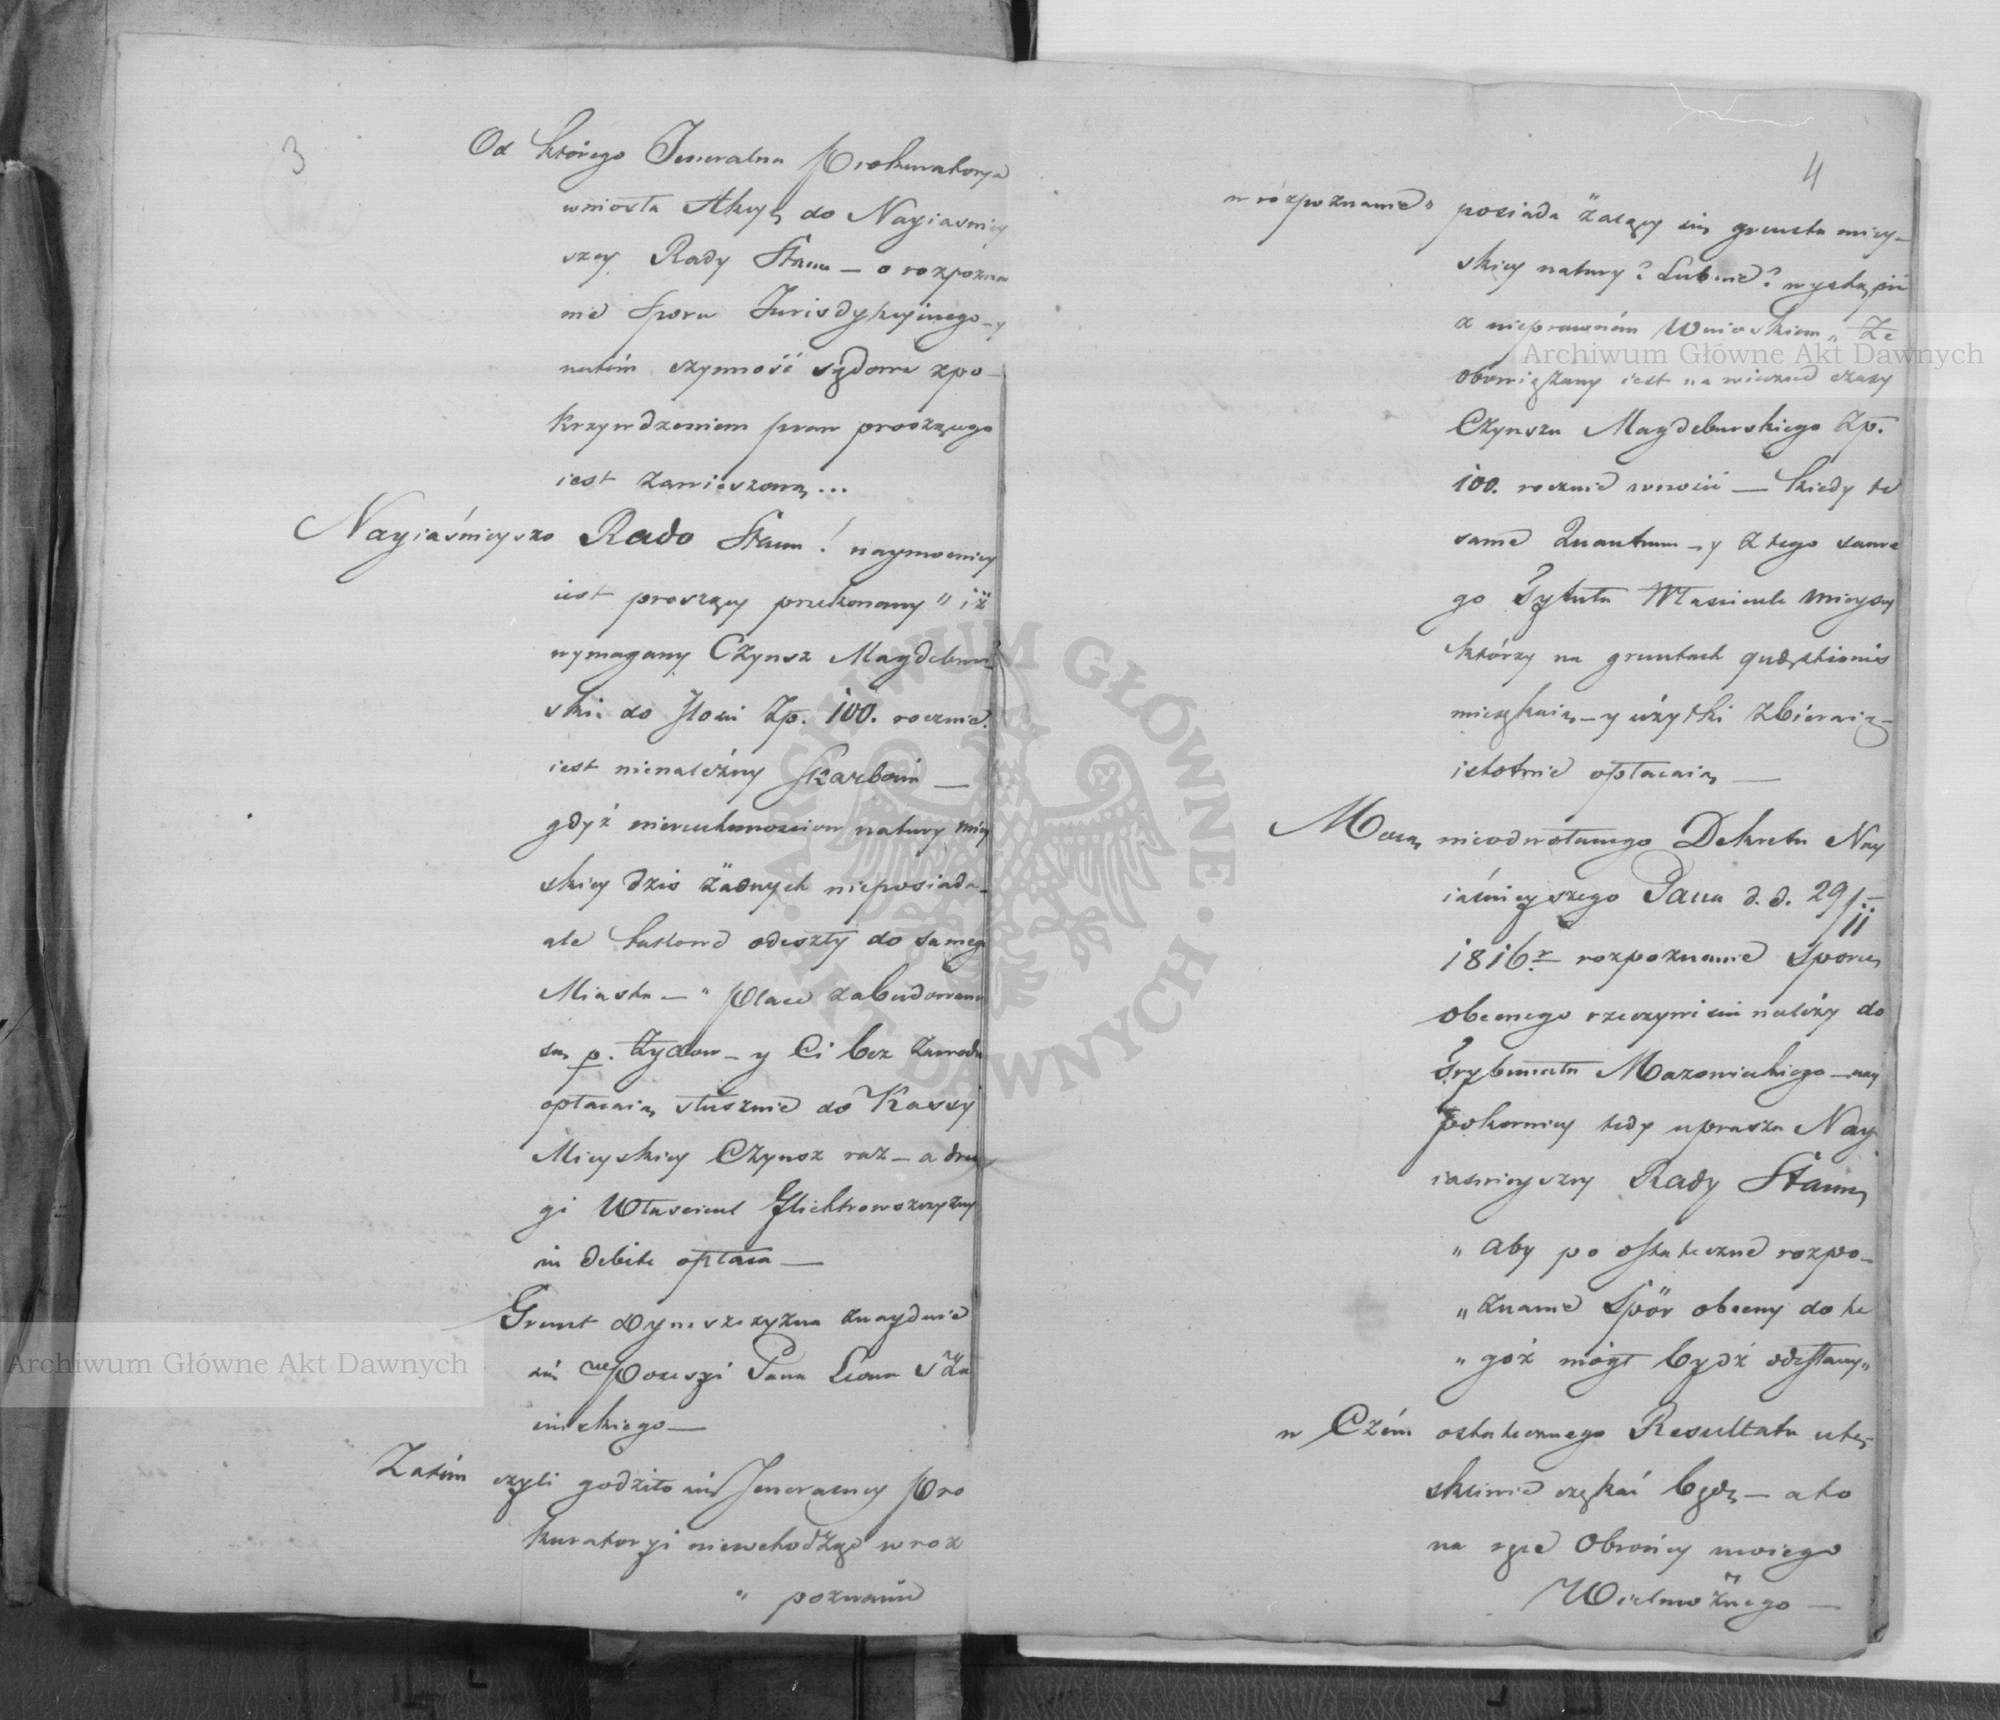 3
Od którego Jeneralna Prokuratorya
wniosła Akcyą do Nayiasniey
szey Rady Stanu — o rozpozna
nie Sporu Jurisdykcyinego — y
natém czynność sądowa z po-
krzywdzeniem praw proszącego
iest zawieszoną...
Nayiaśnieysza Rado Stanu! naymocniey
iest proszący przekonany " iż
wymagany Czynsz Magdebur-
ski do Ilości Zp. 100. rocznie
iest nienależny Skarbowi —
gdyż nieruchomosciow natury miey
skiey dziś żadnych nieposiada-
ale takowe odeszły do samego
Miasta — " Place zabudowane
są p. Żydow — y Ci bez zawodu
opłacaią słusznie do Kassy
Mieyskiey Czynsz raz — a dru
gi Własciciel
in debite opłaca —
Grunt znayduie
się w Possessyi Pana Leona
Zatém czyli godziło się Jeneralney Pro
kuratoryi niewchodząc w roz
" poznanie
4
w rozpoznanie " posiada żalący się grunta miey-
skiey natury? Lub nie? wystąpić
z nieprawném Wnioskiem " Że
obowiązany iest na wieczne czasy
Czynszu Magdeburskiego Zp.
100. rocznie wnosić — kiedy te
same Quantum — y z tego same
go Tytułu Własciciele mieysey
którzy na gruntach questionis
mieszkaią — y użytki zbieraią —
istotnie opłacaią —
Mocą nieodwołanego Dekretu Nay
iaśnieyszego Pana d. d. 29/11
1816 r rozpoznanie Sporu
obecnego rzeczywiscie należy do
Trybunału Mazowieckiego — nay
pokorniey tedy uprasza Nay
iasnieyszey Rady Stanu
" aby po ostateczne rozpo-
" znanie Spór obecny do te
" goż mógł bydź odesłany "
w Czém ostatecznego Resultatu utę-
sknienie czekać będę — a to
na ręce Obrońcy moiego
Wielmożnego —
Archiwum Główne Akt Dawnych
Archiwum Główne Akt Dawnych
ARCHIWUM GŁÓWNE AKT DAWNYCH